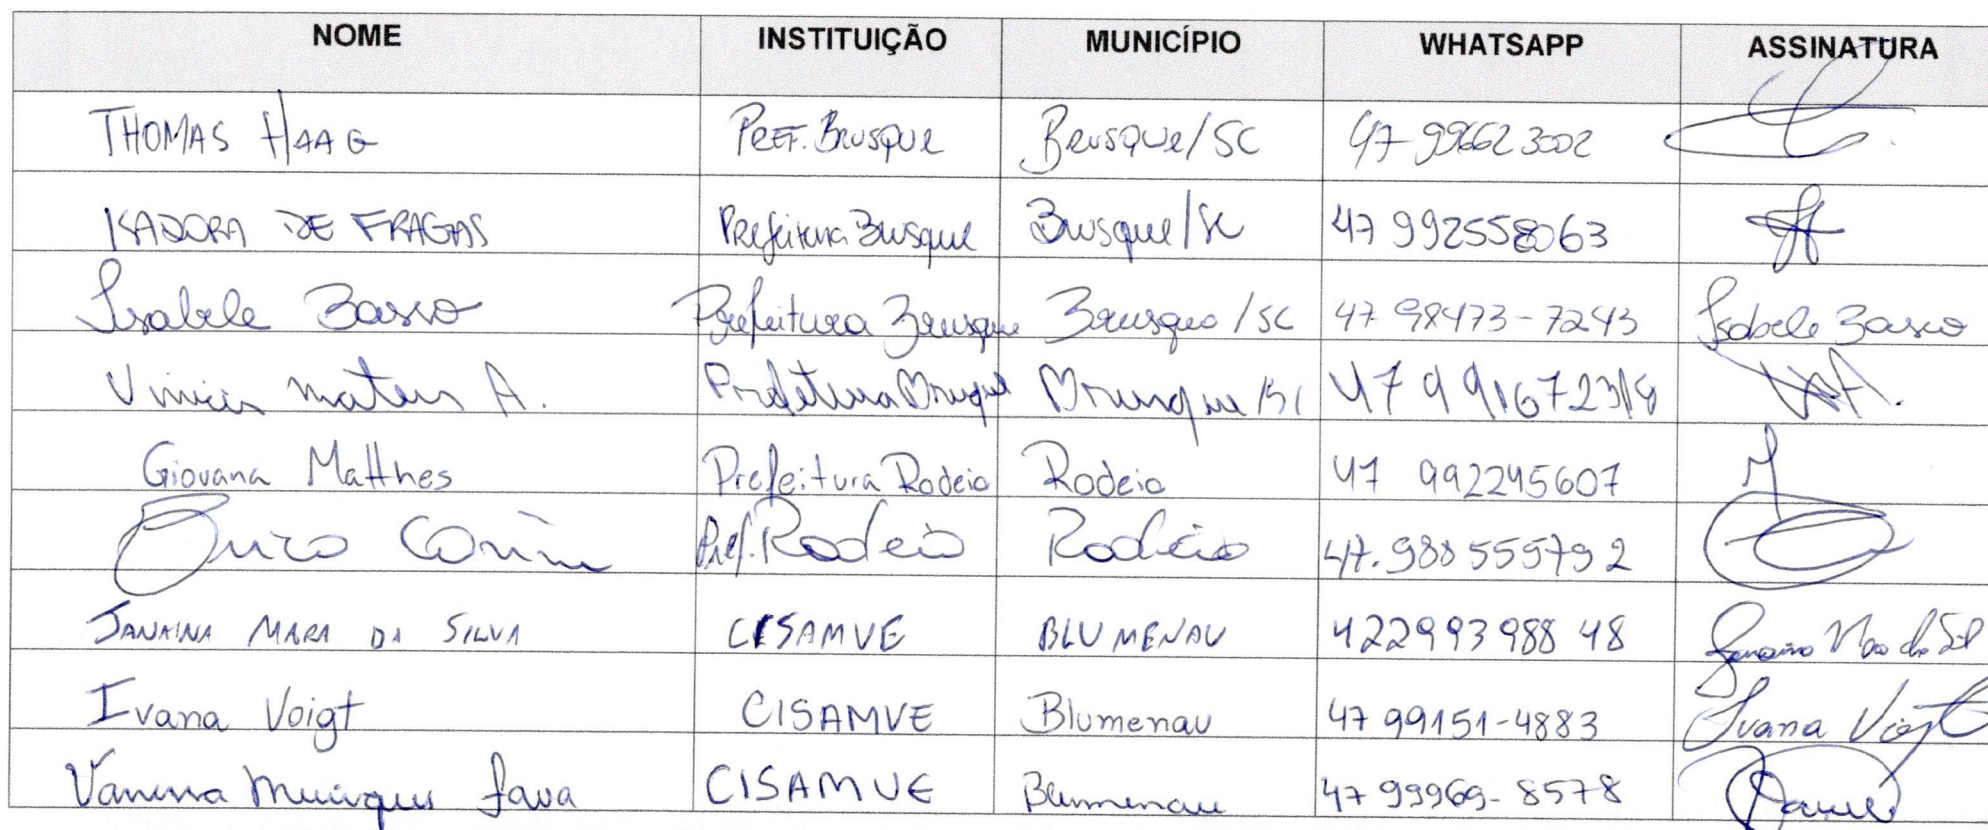 NOME INSTITUIÇÃO MUNICÍPIO WHATSAPP ASSINATURA
THOMAS HAAG PREF. BRUSQUE BRUSQUE/SC 47 996623002
ISADORA DE FRAGAS Prefeitura Brusque Brusque/SC 47 992558063
Isabele Basso Prefeitura Brusque Brusque/SC 47 98473-7243 Isabele Basso
Vinicius Mateus A. Prefeitura Brusque Brusque/SC
Giovana Matthes Prefeitura Rodeio Rodeio 47 992245607
Pref. Rodeio Rodeio 47.988555792
JANAINA MARA DA SILVA CISAMVE BLUMENAU 422993988 48
Ivana Voigt CISAMVE Blumenau 47 99151-4883 Ivana Voigt
Vanessa CISAMVE Blumenau 47 99969-8578